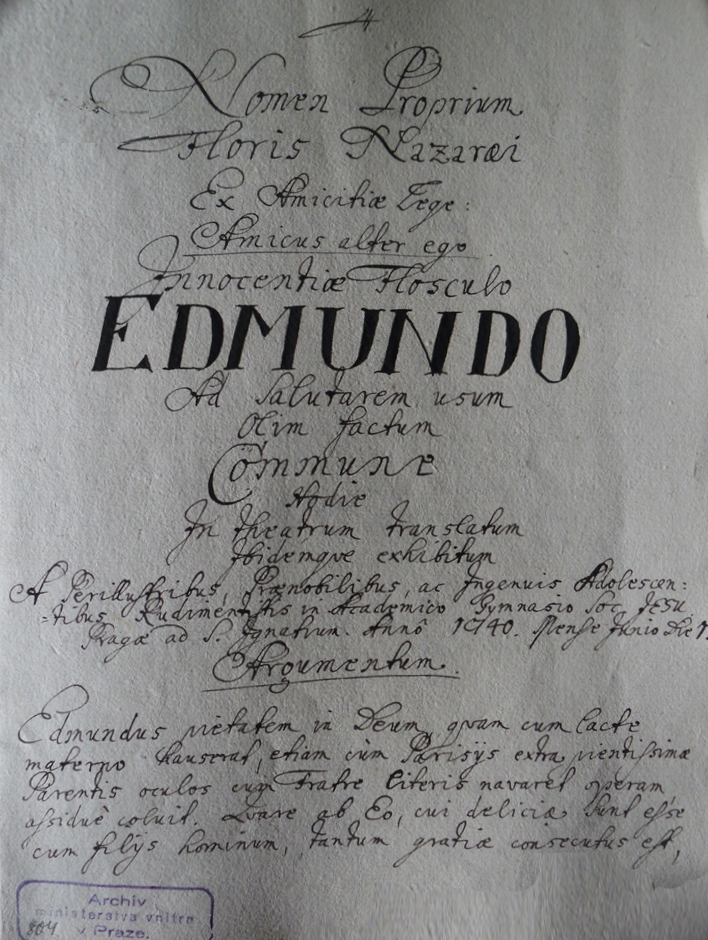 Nomen Proprium
Floris Nazaræi
Ex Amicitiæ Lege:
Amicus alter ego
Innocentiæ Flosculo
EDMUNDO
Ad Salutarem usum
Olim factum
Commune
Hodie
In theatrum translatum
Ibidemque exhibitum
A Perillustribus, Prænobilibus, ac Ingenuis Adolescen:
:tibus Rudimentistis in Academico Gymnasio Soc. JESU
Pragæ ad S. Ignatium. Annô 1740. Mense Junio Die
Argumentum.
Edmundus pietatem in Deum, quam cum lacte
materno hauserat, etiam cùm Parisys extra pientissimæ
Parentis oculos cum Fratre literis navaret operam
assiduê coluit. Quare ab Eo, cui deliciæ sunt esse
cum filijs hominum, tantum gratiæ consecutus est,
Archiv
ministerstva vnitra
v Praze.